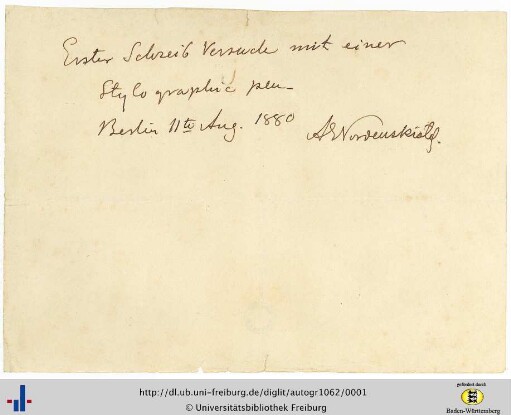 Erster Schreib Versuche mit einer
Stylographic pen
Berlin 11te Aug. 1880 AENordenskiöld.
http://dl.ub.uni-freiburg.de/diglit/autogr1062/0001
© Universitätsbibliothek Freiburg
gefördert durch
Baden-Württemberg